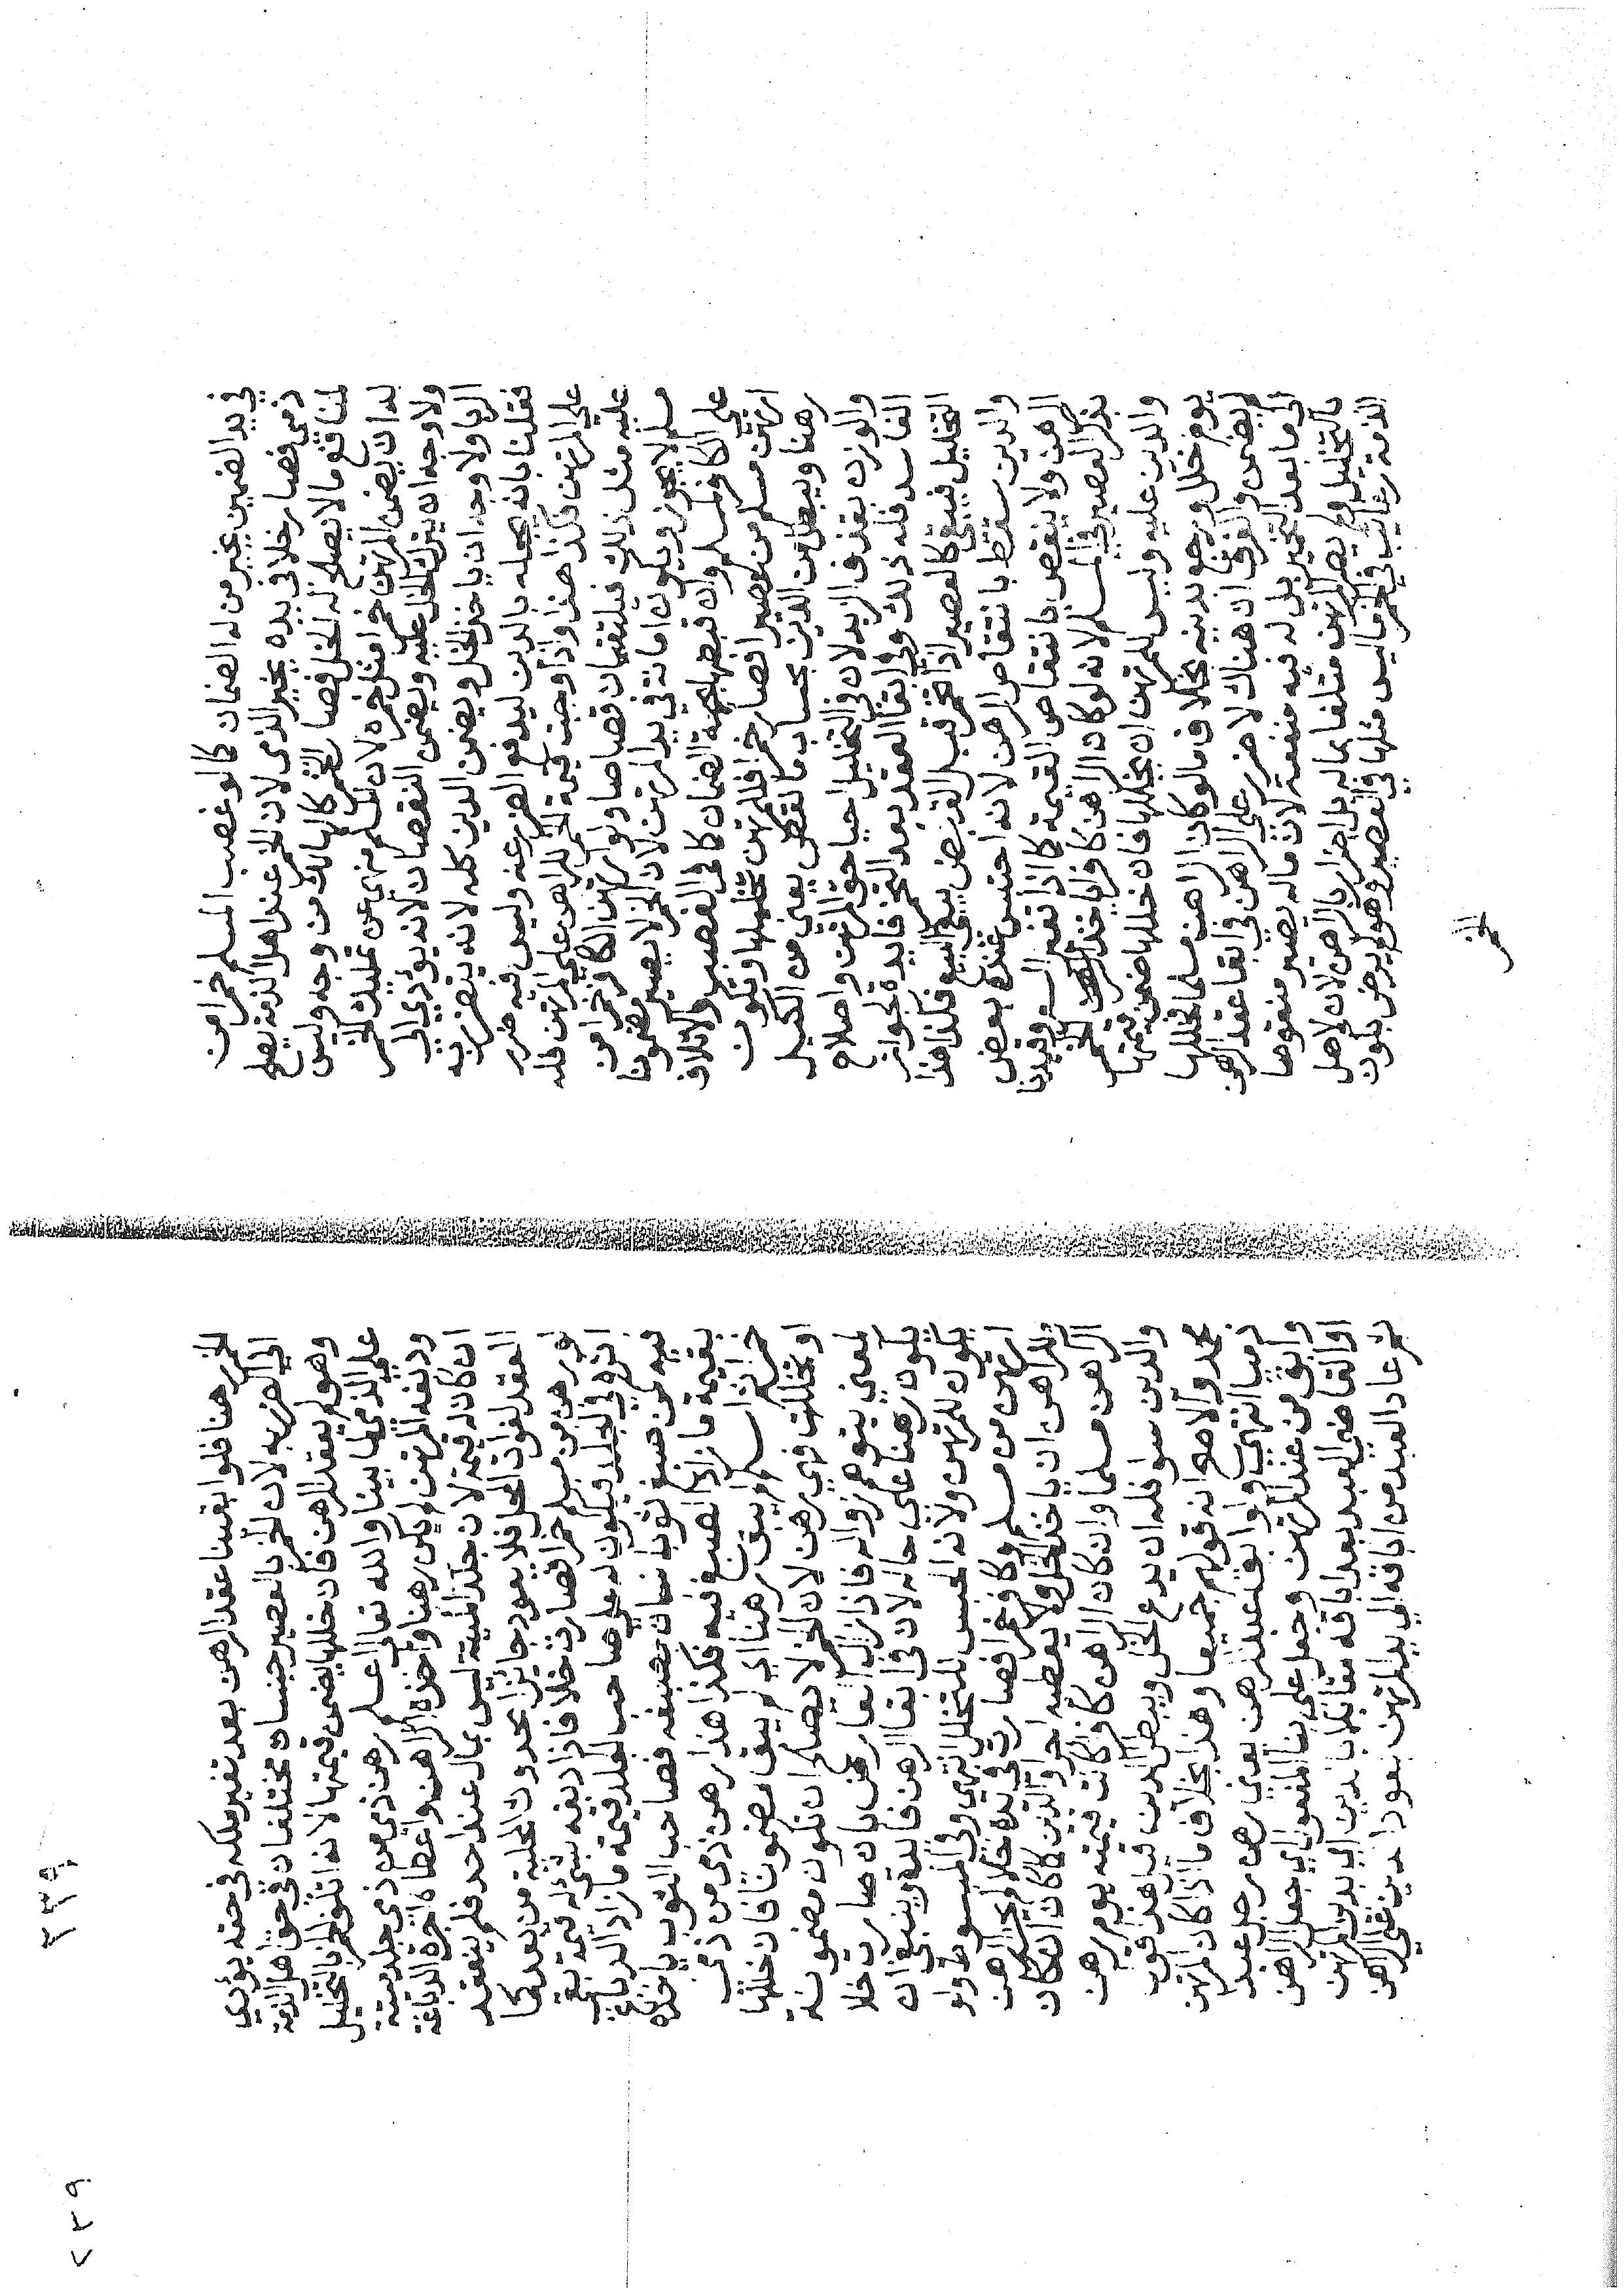 في يد الضمين يخير من له الضمان كما لو غصب المسلم خمرا من
ذمي فصار خلا في يده يخير الذمي لان الخمر عند اهل الذمة يصلح
لمنافع ما لا يصلح له الخل فصار التخمر كالهالك من وجه وليس
له ان يضمن المرتهن خمرا مثل خمره لان المسلم منهي عن تمليك الخمر
ولا وجه ان يترك الخل عليه ويضمن النقصان لانه يؤدي الى
الربا ولا وجه ان ياخذ الخل ويضمن الدين كله لانه يتضرر به
فقلنا بانه يجعله بالدين ليدفع الضرر عنه وليس فيه ضرر
على المرتهن فكذا هذا واذا وجبت قيمة الخمر للراهن على المرتهن فله
عليه مثل ذلك فيلتقيان قصاصا ولو ارتهن الكافر خمرا من
مسلم لا يجوز ويكون امانة في يد المرتهن لان الخمر لا يصير مضمونا
على الكافر للمسلم وان قبضها بجهة الضمان كما في الغصب والاتلاف
ارتهن مسلم من عصيرا فصار خمرا فللمرتهن تخليلها وتكون
رهنا ويبطل من الدين بحساب ما نقص يعني من الكيل
والوزن بقذف الزبد لان في التخليل احيا حق المرتهن واصلاح
الفاسد فله ذلك وفي ابقا العقد بعد التخمر فايدة لجواز
التخليل فيبقى كالعصير اذا تخمر قبل القبض يبقى البيع فكذا هذا
والدين سقط بانتقاص الرهن لانه احتبس عنده بعض
الرهن ولا ينقص بانتقاص القيمة كما اذا تغير السعر وقيدنا
بذكر العصير في المسلم لانه لو كان الراهن كافرا ياخذ الخمر
والدين عليه وليس للمرتهن ان يخللها فان خللها ضمن قيمتها
يوم خلل ورجع بدينه بخلاف ما لو كان الراهن مسلما فخللها
لا يضمن والفرق ان هناك لا ضرر على الراهن في ابقا عقد الرهن
الى ما بعد التخمير بل له فيه منفعة لان ماله يصير متقوما
بالتخليل ولم يصر المرتهن متلفا بماله بل اضرار بالراهن لان لاهل
الذمة رغايب في الخمر ما ليس مثلها في العصير وهو لم يرض بكون
الخمر
٢٣٩
الخمر هنا فلو ابقينا عقد الرهن بعد تغير ملكه في حقه يؤدي
الى الضرر به لان الخمر بالعصير جنسان مختلفان في حق اهل الذمة
وهو لم يعقد الرهن فان خللها يضمن قيمتها لانه اتلف الخمر بالتخليل
على الذمي لما بينا والله تعالى اعلم رهن ذمي من ذمي جلد ميتة
ودبغه المرتهن لم يكن رهنا واخذه الراهن واعطاه اجرة الدباغة
ان كان له قيمة لان جلد الميتة ليس بمال عند احد فلم ينعقد
العقد لفوات المحل فلا يعود جائزا بحدوث المحلية من بعد كما
لو رهن من مسلم خمرا فصارت خلا فاذا دبغه بشي له قيمة بقي
اثره في الجلد فيكون له على صاحب الجلد قيمة ما زاد الدباغ
فيه كمن صبغ ثوب انسان بصبغه فصاحب الثوب ياخذه
بقيمة ما زاد الصبغ فيه فكذا هذا رهن ذمي من ذمي
خمرا ثم اسلم لم يبق رهنا اي لم يبق مضمونا فان خللها
او تخللت فهي رهن لان الخمر لا يصلح ان تكون مضمونة
لمعنى يتوهم زواله فاذا زال العارض بان صارت خلا
يكون رهنا على حاله لان في ابقا الرهن فايدة وينبغي ان
يكون للمرتهن ولاية الحبس للتخلل انتهى وفي المبسوط ولو
ارتهن من مسلم وكافر خمرا فصارت في يده خلا لم يجز الرهن
وللراهن ان ياخذ الخل ولا يعطيه اجرا والدين كما كان ان كان
الراهن مسلما وان كان الراهن كافرا كانت قيمته يوم رهن
والدين سوا فله ان يدع الخل ويبطل الدين قيل هذا قول
محمد والاصح انه قولهم جميعا وهذا بخلاف ما اذا كان المرتهن
ذميا انتهى ولو ابق عبد رهن يعني رهن رجل عبدا
وابق من عند المرتهن وجعل على بنا المفعول اي جعل الراهن
او القاضي العبد بعد اباقه مقابلا بالدين اي بدين المرتهن
ثم عاد العبد من اباقه الى يد المرتهن يعود الدين على الراهن
٢٣٩